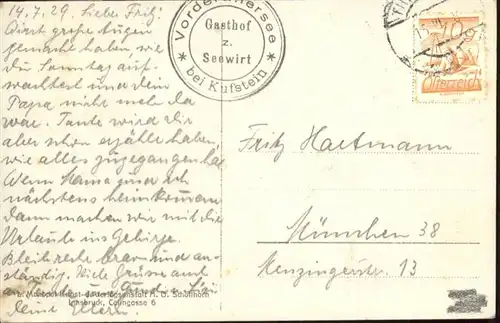 14.7.29 Liebe Fritz!
Wirst große Augen
gemacht haben wie
du Sonntag auf-
wachtest und dein
Papa nicht mehr da
war. Tante wird dir
aber schon erzählt haben
wie alles zugegangen hat
Wenn Mama und ich
nächstens heimkommen
dann machen wir mit dir
Urlaub ins Gebirge.
Bleib recht brav und an-
ständig. Viele Grüße auch
an Tante und
deine Eltern.
Innsbruck, Colingasse 6
* Vorder Thiersee * bei Kufstein
Gasthof
z.
Seewirt
Österreich
Fritz Hartmann
München 38
Menzingerstr. 13